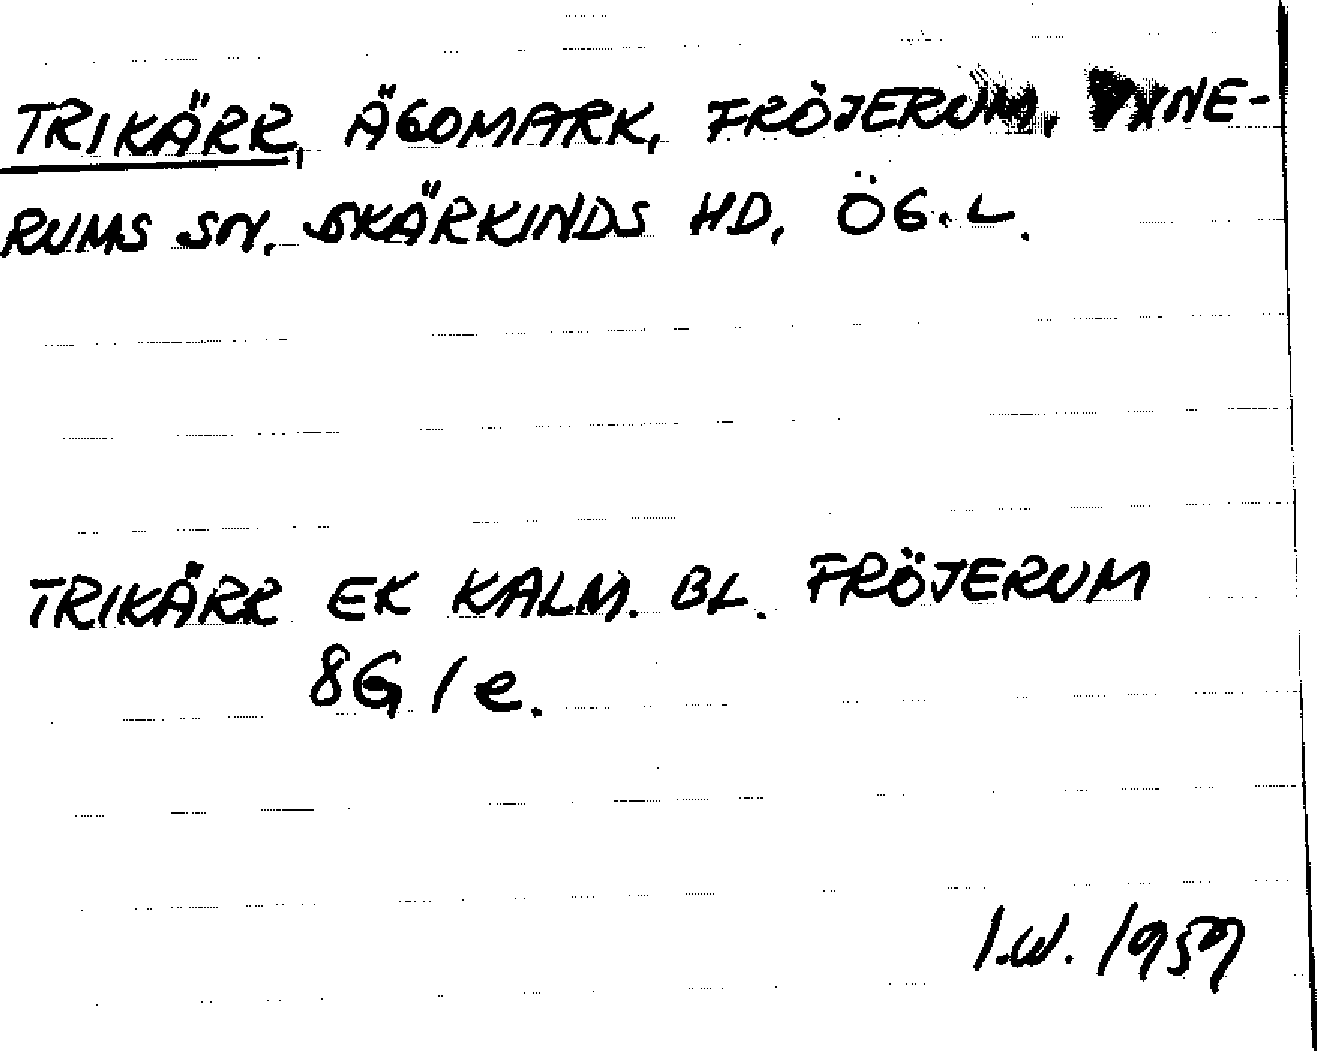 TRIKÄRR, ÄGOMARK, FRÖJERUM, YXNE-
RUMS SN, SKÄRKINDS HD, ÖG.L.
TRIKÄRR EK KALM. BL. FRÖJERUM
8G 1e.
I.W. 1959